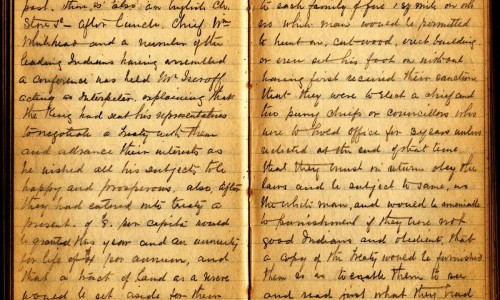 past. There is also an English Ch.
Store &c – After lunch. Chief Wm
Whitehead and a number of the
leading Indians having assembled
a conference was held Mr
acting as Interpreter. explaining that
the King had sent his representatives
to negotiate a Treaty with them
and advance their interests as
he wished all his subjects to be
happy and prosperous. also, after
they had entered into treaty a
present. of 8. per capita would
be granted this year and an annuity
for life of 4 per annum, and
that a tract of land as a reserve
would be set aside for them
to each family of five 1 sq mile on
ers while man would be permitted
to hunt on, cut wood, erect building
or even set his foot on without
having first secured their sanction
that they were to elect a chief and
two puny chiefs or councillors who
were to hold office for 3 years unless
reelected at the end of that time.
that they must in return obey the
laws and be subject to same, as
the white man, and would be amenable
to punishment if they were not
good Indians and obedient, that
a copy of the Treaty would be furnished
them so as to enable them to see
and read just what they had